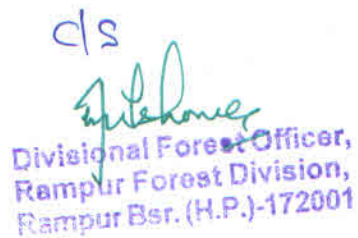 C/S
Divisional Forest Officer,
Rampur Forest Division,
Rampur Bsr. (H.P.)-172001